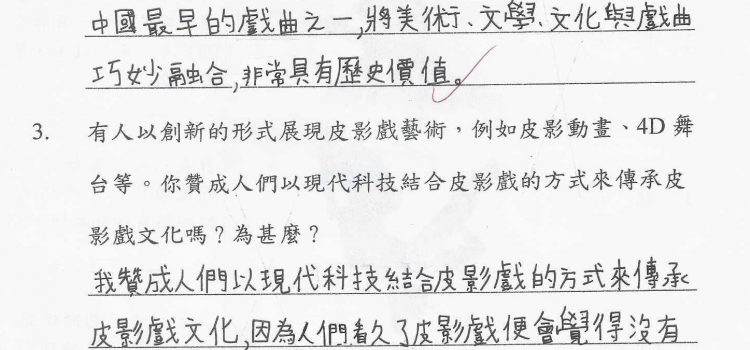 中國最早的戲曲之一,將美術、文學、文化與戲曲
巧妙融合,非常具有歷史價值。
3. 有人以創新的形式展現皮影戲藝術，例如皮影動畫、4D 舞
台等。你贊成人們以現代科技結合皮影戲的方式來傳承皮
影戲文化嗎？為甚麼？
我贊成人們以現代科技結合皮影戲的方式來傳承
皮影戲文化,因為人們看久了皮影戲便會覺得沒有